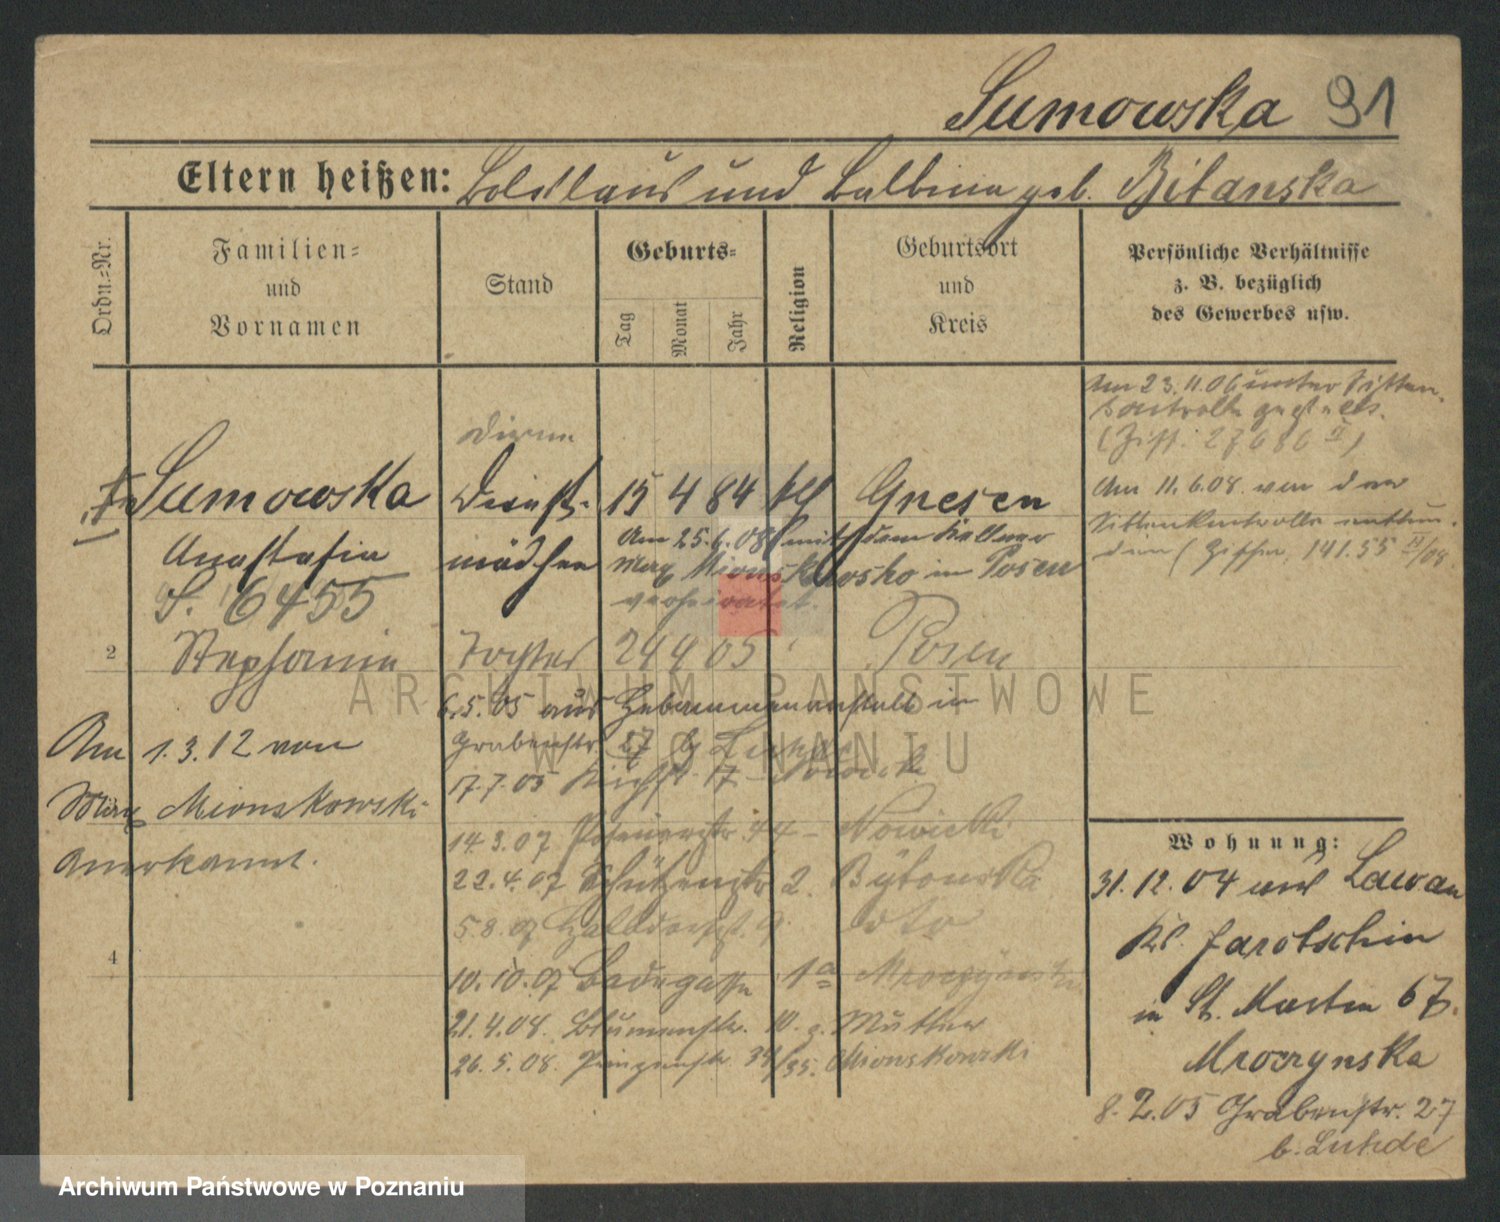 Sumowska 91
Eltern heißen: Boleslaus und Balbina geb. Bilanska
Ordn.-Nr.
Familien-
und
Vornamen
Stand
Geburts-
Tag
Monat
Jahr
Religion
Geburtsort
und
Kreis
Persönliche Verhältnisse
z. B. bezüglich
des Gewerbes usw.
Am 23.11.06 unter Sitten-
kontrolle gestellt.
Dirne
Sumowska Dienst- 15 4 84 Gnesen
Anastasia mädchen
S. 6455
Am 25.6.08 mit dem Kellner
Max Mionskowski in Posen
verheiratet.
Am 11.6.08 von der
Sittenkontrolle
2 Stephania Tochter 24 4 05 Posen
6.5.05 aus Hebammenanstalt in
Grabenstr. 27 b. Luhde
17.7.05 17 Nowicki
Am 1.3.12 von
Max Mionskowski
anerkannt.
14.3.07 Posenerstr. 44 - Nowicki
22.4.07 Schützenstr. 2. Bytonska
5.8.07 9. dto
4
10.10.07 Badegasse 1a Mroczynska
21.4.08. Blumenstr. 10. Mutter
26.5.08. Prinzenstr. 34/35. Mionskowski
Wohnung:
31.12.04 aus
Kr. Jarotschin
in St. Martin 67.
Mroczynska
8.2.05 Grabenstr. 27
b. Luhde
ARCHIWUM PAŃSTWOWE
W POZNANIU
Archiwum Państwowe w Poznaniu